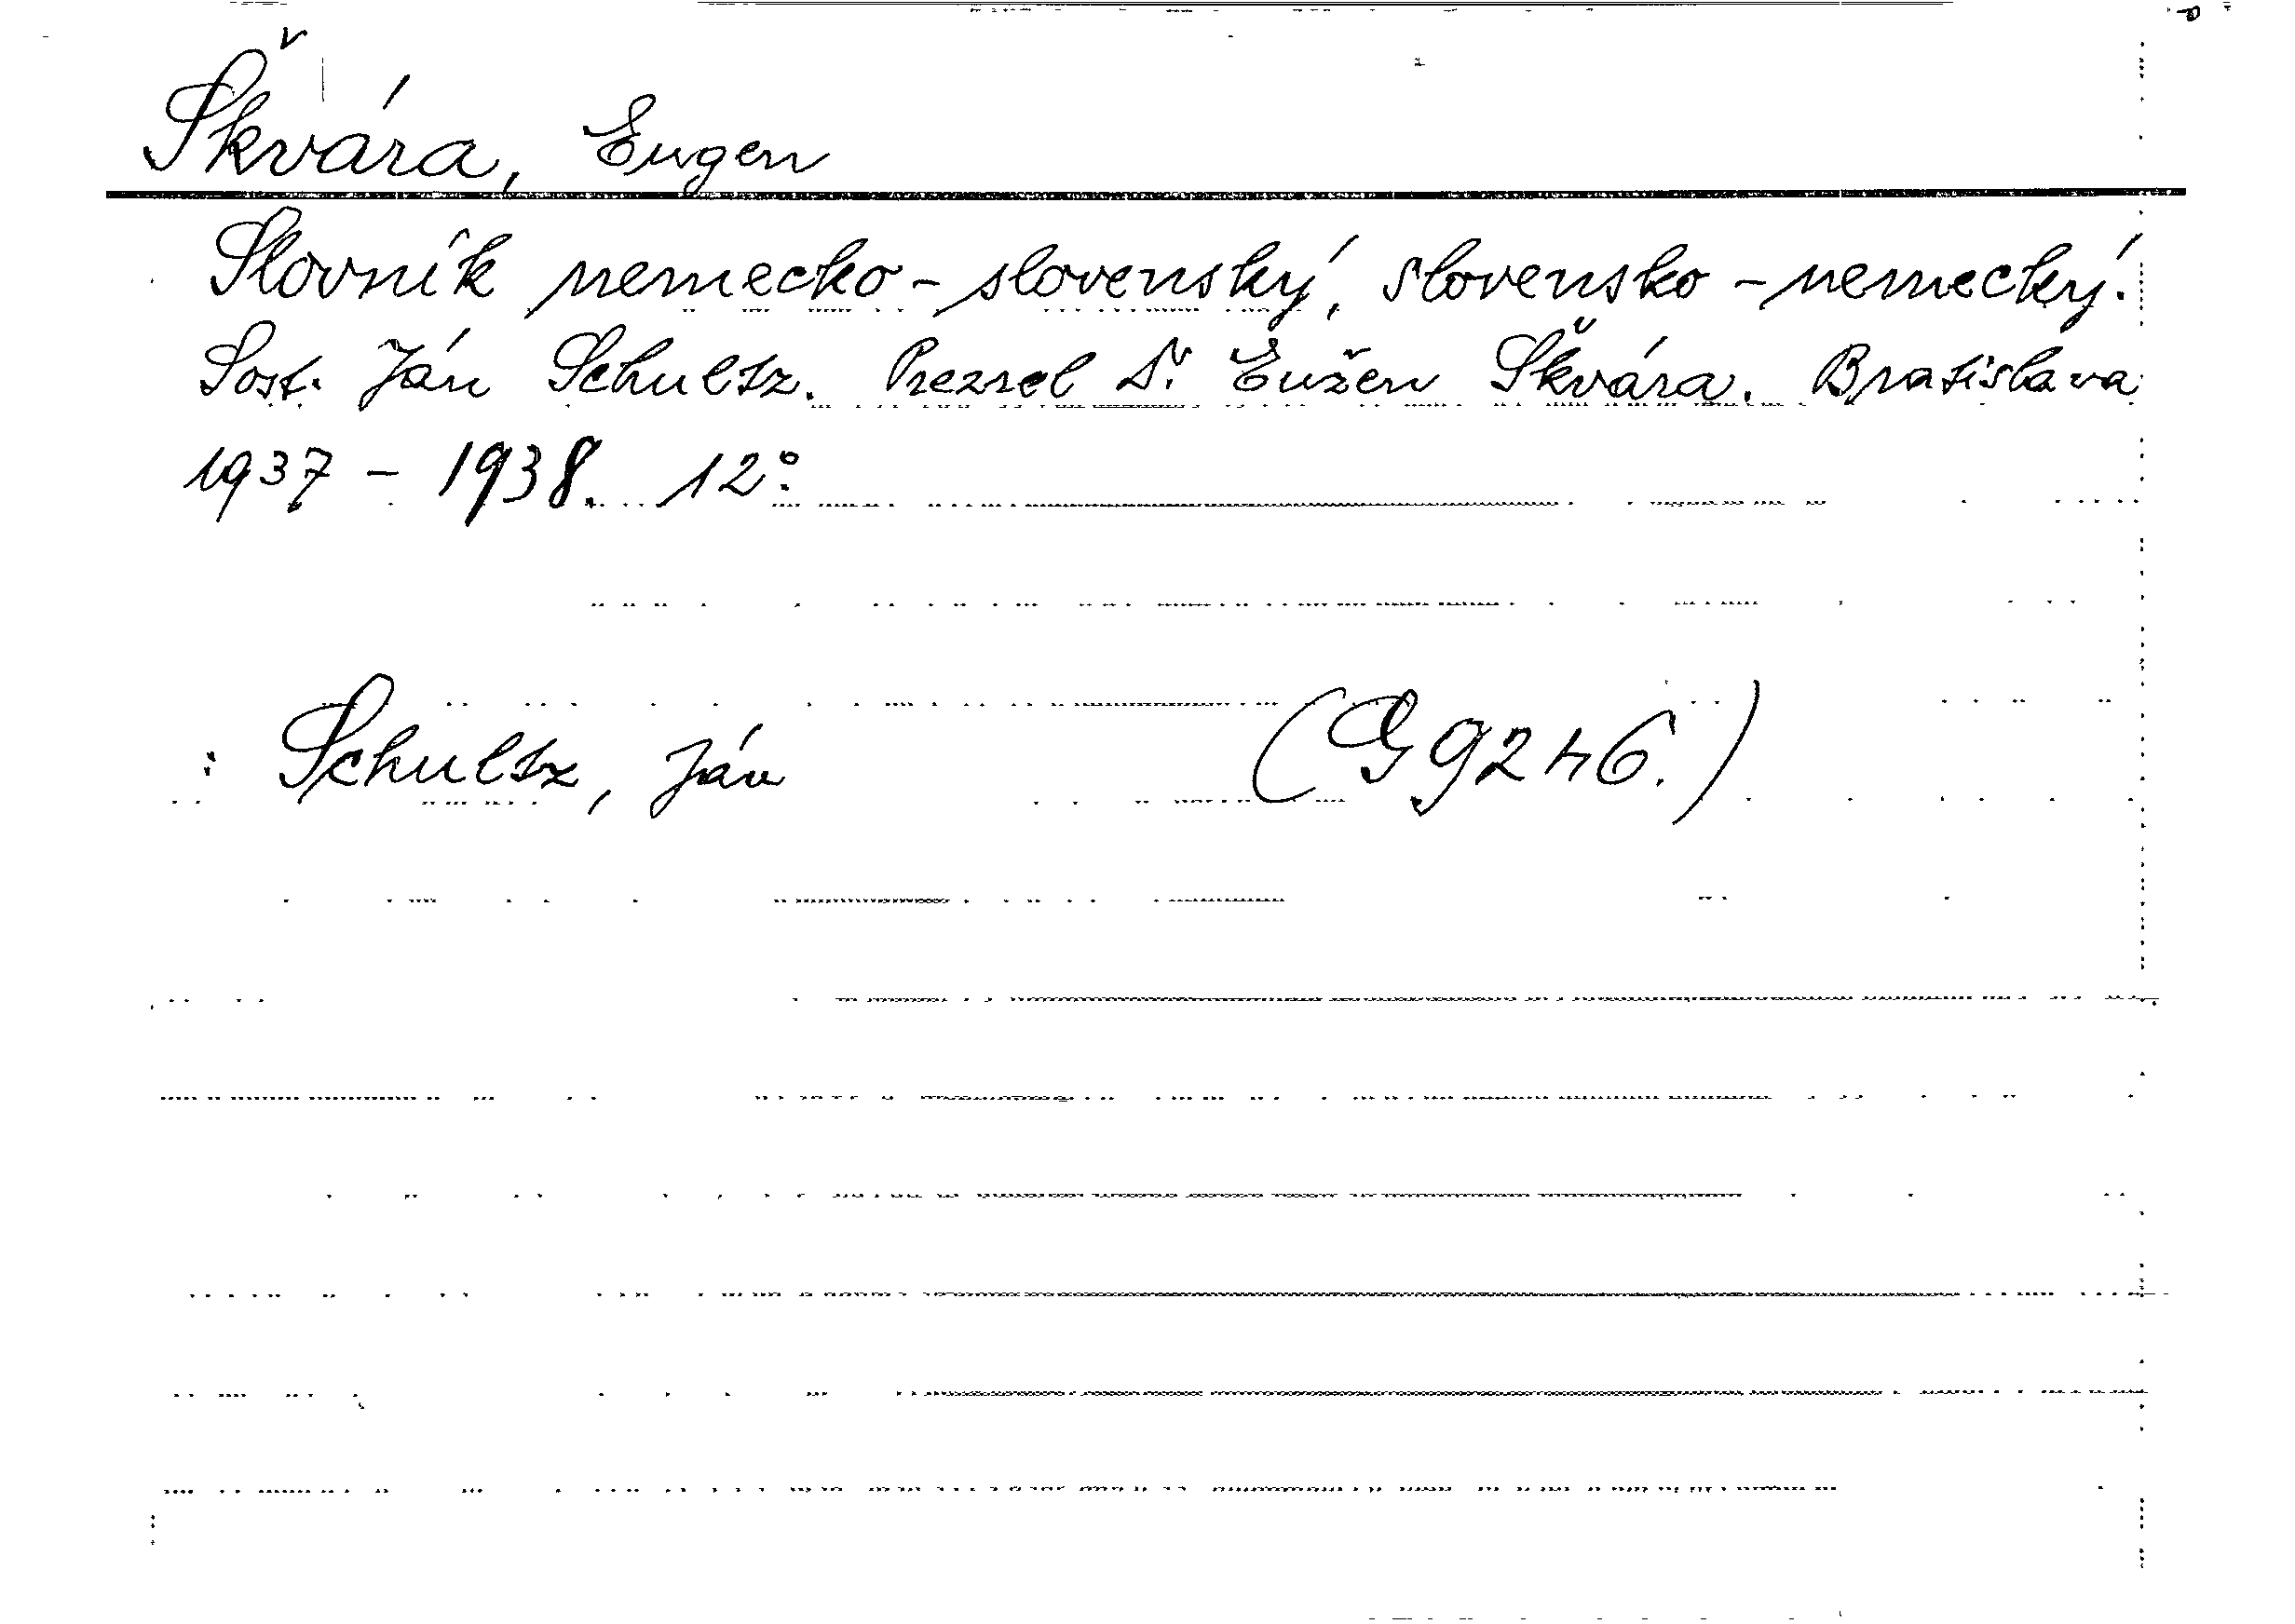 Škvára, Eugen
Slovník nemecko-slovenský, slovensko-nemecký.
Sost. Ján Schultz. Prezrel Dr. Eužen Škvára. Bratislava
1937-1938. 12°.
: Schultz, Ján (G 9246.)